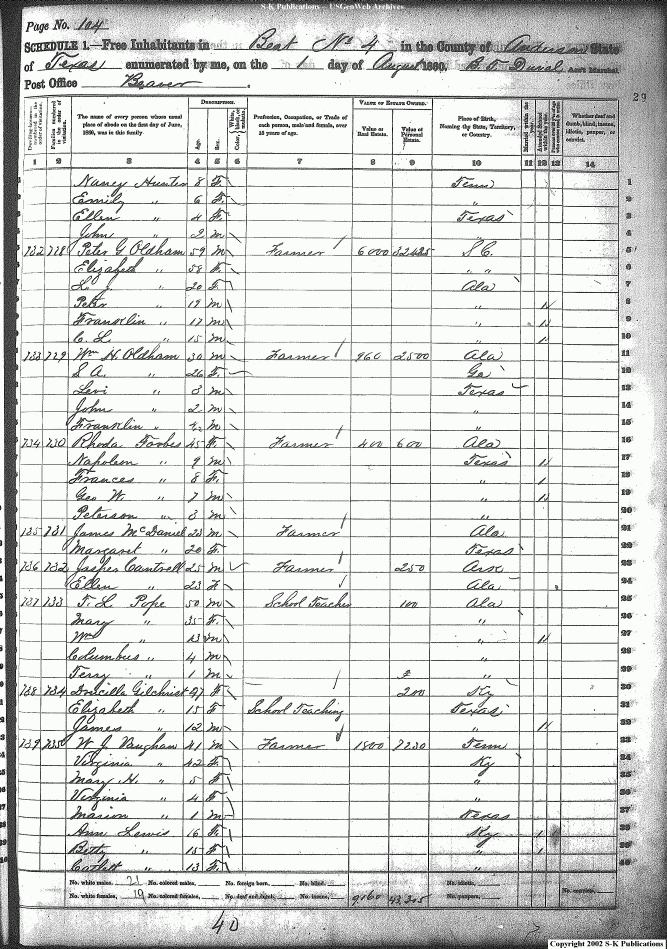 S-K Publications - USGenWeb Archives
Page No. 104
SCHEDULE 1.—Free Inhabitants in Beat No 4 in the County of Anderson State
of Texas enumerated by me, on the 1 day of August 1860. Ass't Marshal
Post Office Beaver
29
DESCRIPTION. VALUE OF ESTATE OWNED.
The name of every person whose usual place of abode on the first day of June, 1860, was in this family. Age. Sex. Profession, Occupation, or Trade of each person, male and female, over 15 years of age. Value of Real Estate. Value of Personal Estate. Place of Birth, Naming the State, Territory, or Country. Married within the Attended School Whether deaf and dumb, blind, insane, idiotic, pauper, or convict.
1 2 3 4 5 6 7 8 9 10 11 12 13 14
Nancy Hunter 8 F. Tenn 1
Emily " 6 F. " 2
Ellen " 4 F. Texas 3
John " 2 m " 4
732 728 Peter G Oldham 59 m Farmer 6000 32,485 S C. 5
Elizabeth " 58 F. " " 6
" 20 F. Ala 7
Peter " 19 m " 8
Franklin " 17 m " 9
C. L. " 15 m " 10
733 729 Wm H. Oldham 30 m Farmer 960 2500 Ala 11
S A. " 26 F. Ga 12
Levi " 3 m Texas 13
John " 2 m " 14
Franklin " m " 15
734 730 Rhoda Forbes 45 F. Farmer 400 600 Ala 16
Napoleon " 9 m Texas 17
Frances " 8 F. " 18
Geo W. " 7 m " 19
Peterson " 3 m " 20
735 731 James McDaniel 23 m Farmer Ala 21
Margaret " 20 F. Texas 22
736 732 Jasper Cantrell 25 m Farmer 250 Ark 23
Ellen " 23 F Ala 24
737 733 F. L. Pope 50 m School Teacher 100 Ala 25
Mary " 35 F. " 26
Wm " 13 m " 27
Columbus " 4 m " 28
Terry " 1 m " 29
738 734 Drucilla Gilchrist 47 F 200 Ky 30
Elizabeth " 15 F School Teaching Texas 31
James " 12 m " 32
739 735 W J. Vaughan 41 m Farmer 1800 7230 Tenn 33
Virginia " 42 F. Ky 34
Mary H. " 5 F " 35
Virginia " 4 F " 36
Marion " 1 m Texas 37
Ann Lewis 16 F. Ky 38
Betty " 15 F " 39
" 13 F " 40
No. white males, 21 No. colored males, No. foreign born, No. blind, No. idiotic, No. convicts,
No. white females, 19 No. colored females, No. deaf and dumb, No. insane, 9,160 43,265 No. paupers,
40
Copyright 2002 S-K Publications